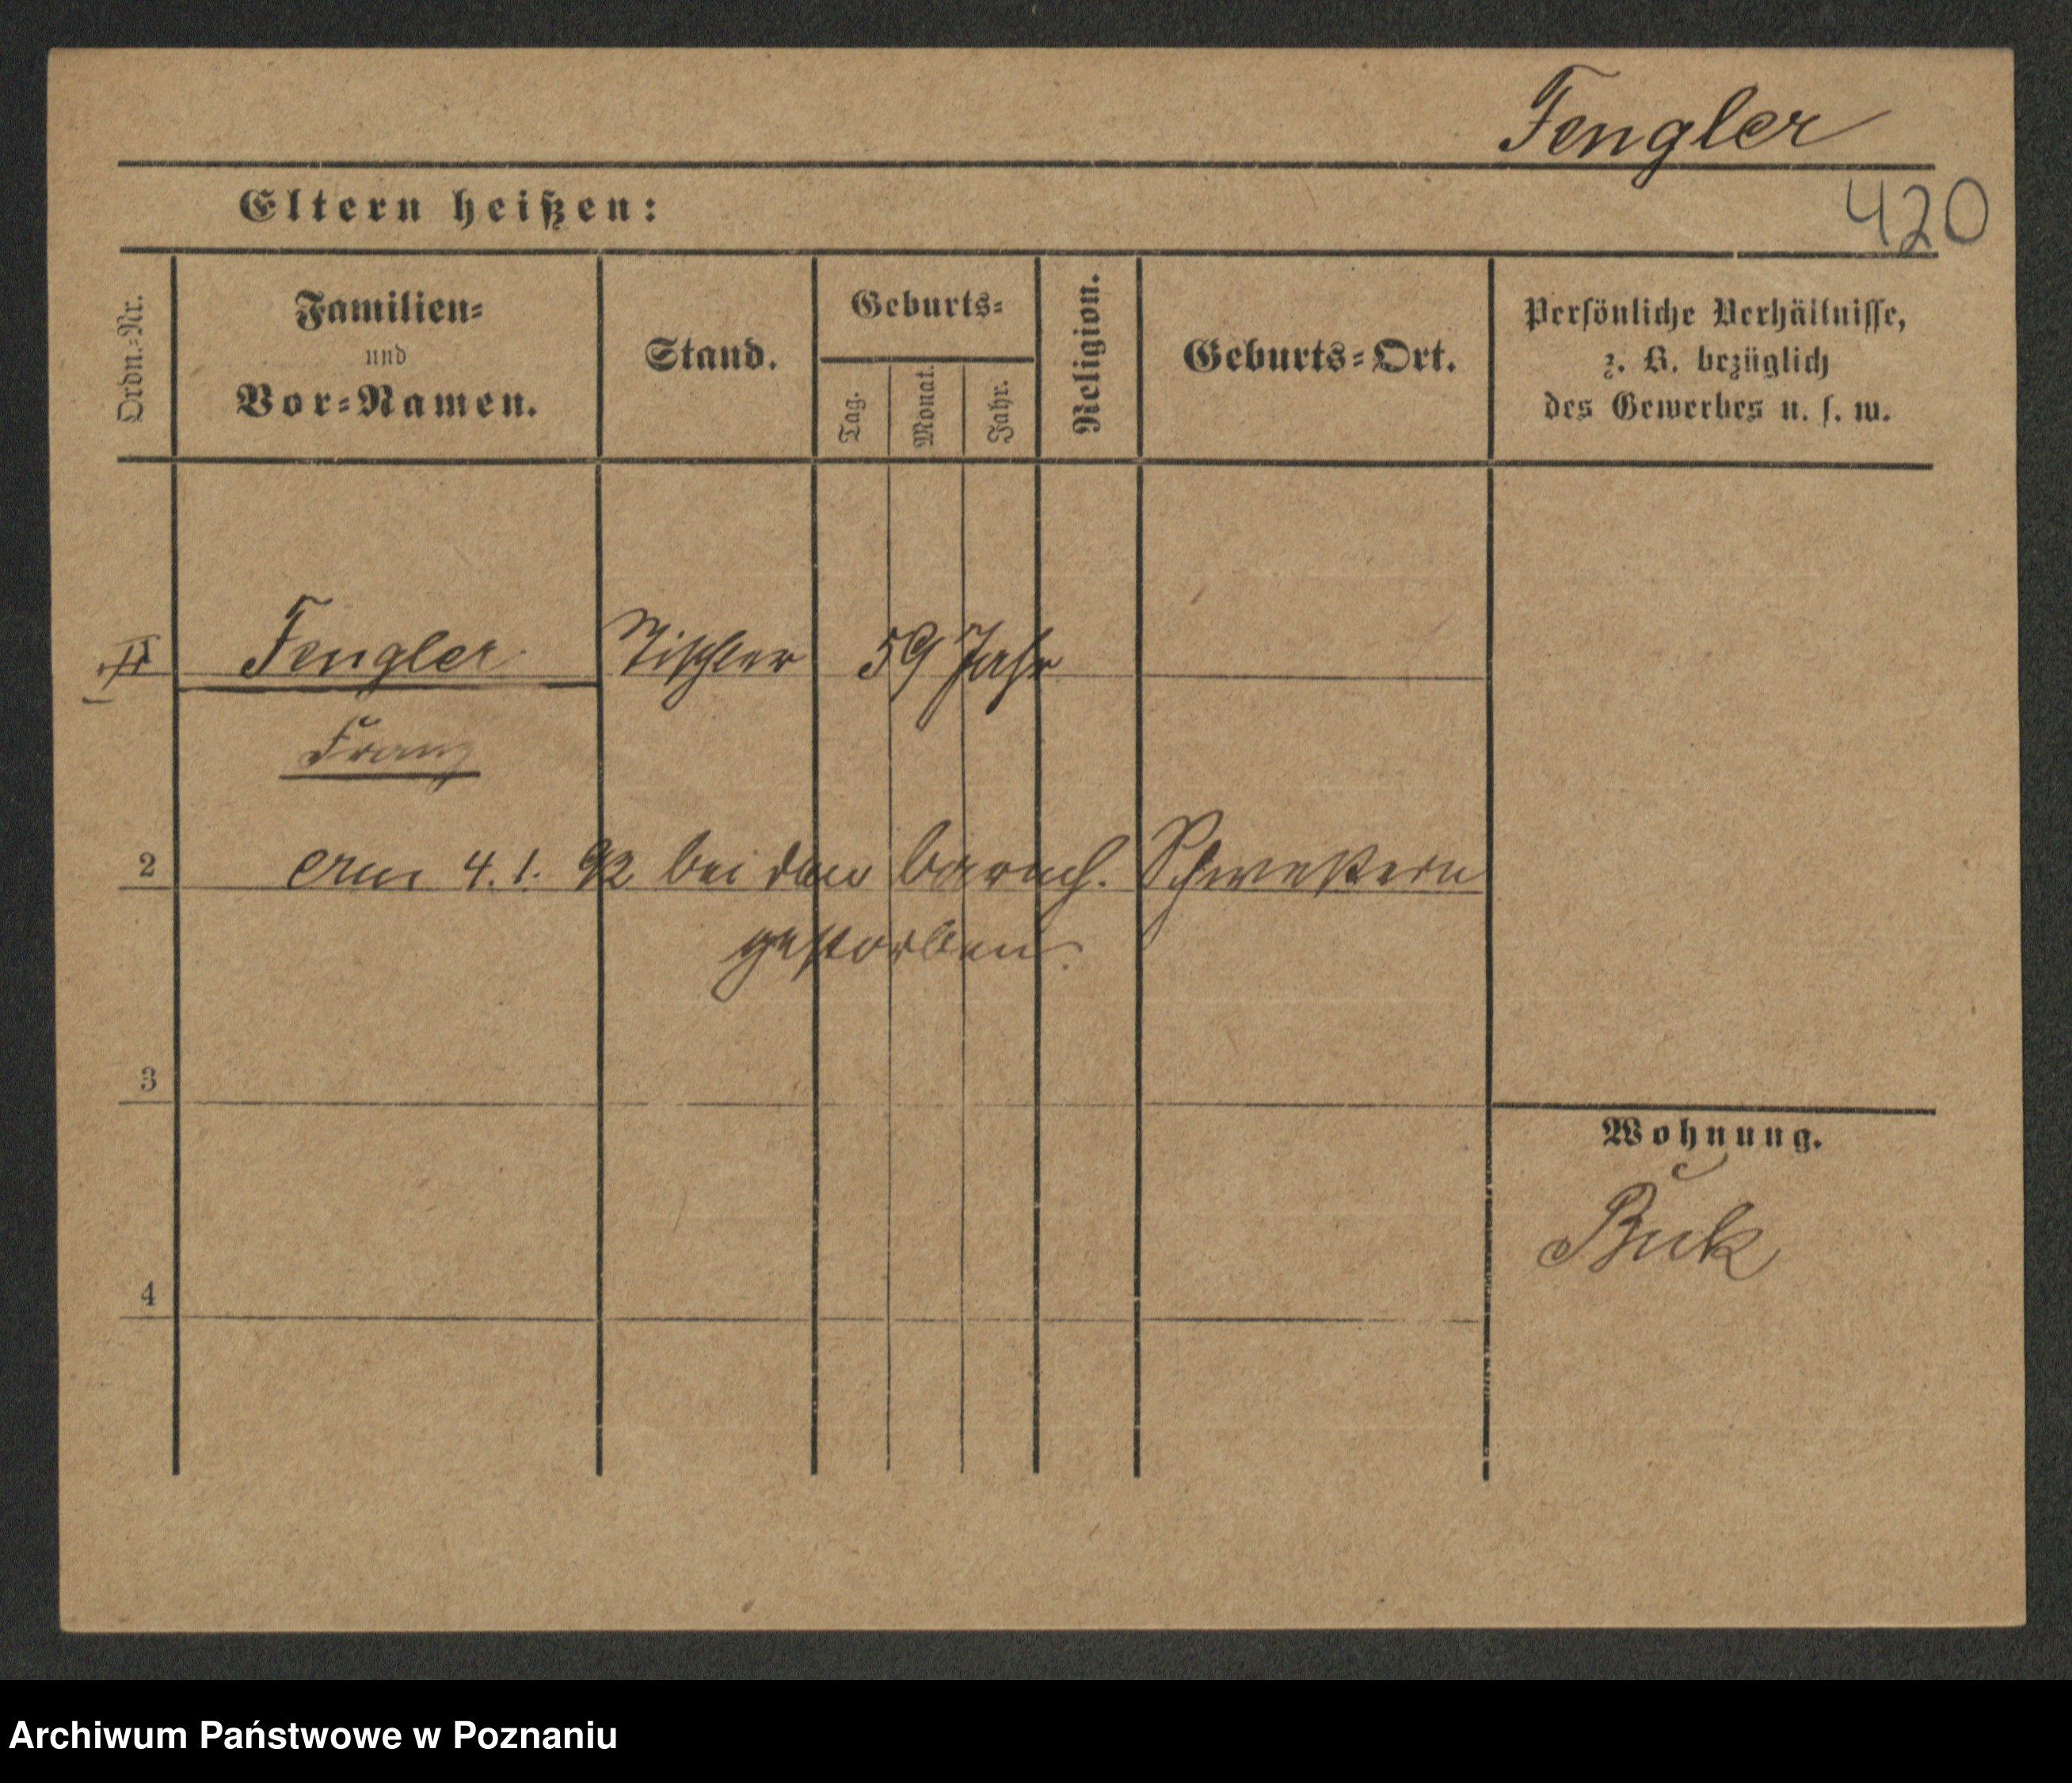 Fengler
420
Eltern heißen:
Ordn.-Nr.
Familien-
und
Vor-Namen.
Stand.
Geburts-
Tag.
Monat.
Jahr.
Religion.
Geburts-Ort.
Persönliche Verhältnisse,
z. B. bezüglich
des Gewerbes u. s. w.
Fengler Tischler 59 Jahr
Franz
2 am 4. 1. 92 bei den barmh. Schwestern
gestorben.
3
Wohnung.
Buk
4
Archiwum Państwowe w Poznaniu